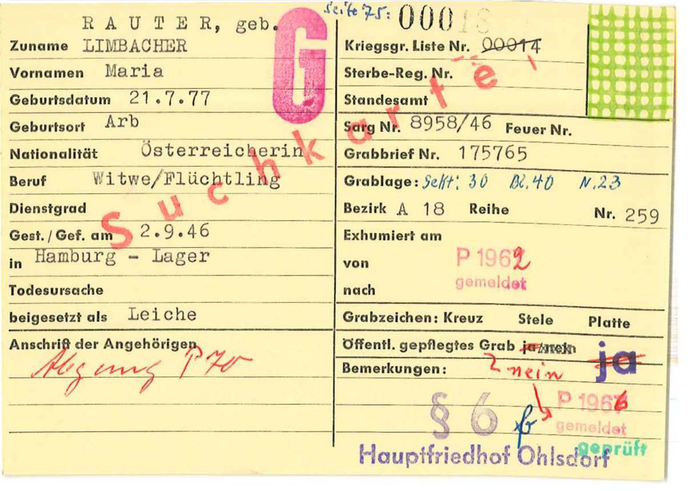 Seite 75: 00018
R A U T E R, geb.
Zuname LIMBACHER
Kriegsgr. Liste Nr. 00014
Vornamen Maria
Sterbe-Reg. Nr.
Geburtsdatum 21.7.77
Standesamt
Geburtsort Arb
Sarg Nr. 8958/46 Feuer Nr.
Nationalität Österreicherin
Grabbrief Nr. 175765
Beruf Witwe/Flüchtling
Grablage: Sekt: 30 Bl. 40 N. 23
Dienstgrad
Bezirk A 18 Reihe Nr. 259
Gest./Gef. am 2.9.46
Exhumiert am
in Hamburg - Lager
von
P 1962
gemeldet
Todesursache
nach
beigesetzt als Leiche
Grabzeichen: Kreuz Stele Platte
Anschrift der Angehörigen
Öffentl. gepflegtes Grab ja nein
ja
Abgang P 70
Bemerkungen:
nein
G
Suchkartei
§ 6
P 1966
gemeldet
geprüft
Hauptfriedhof Ohlsdorf